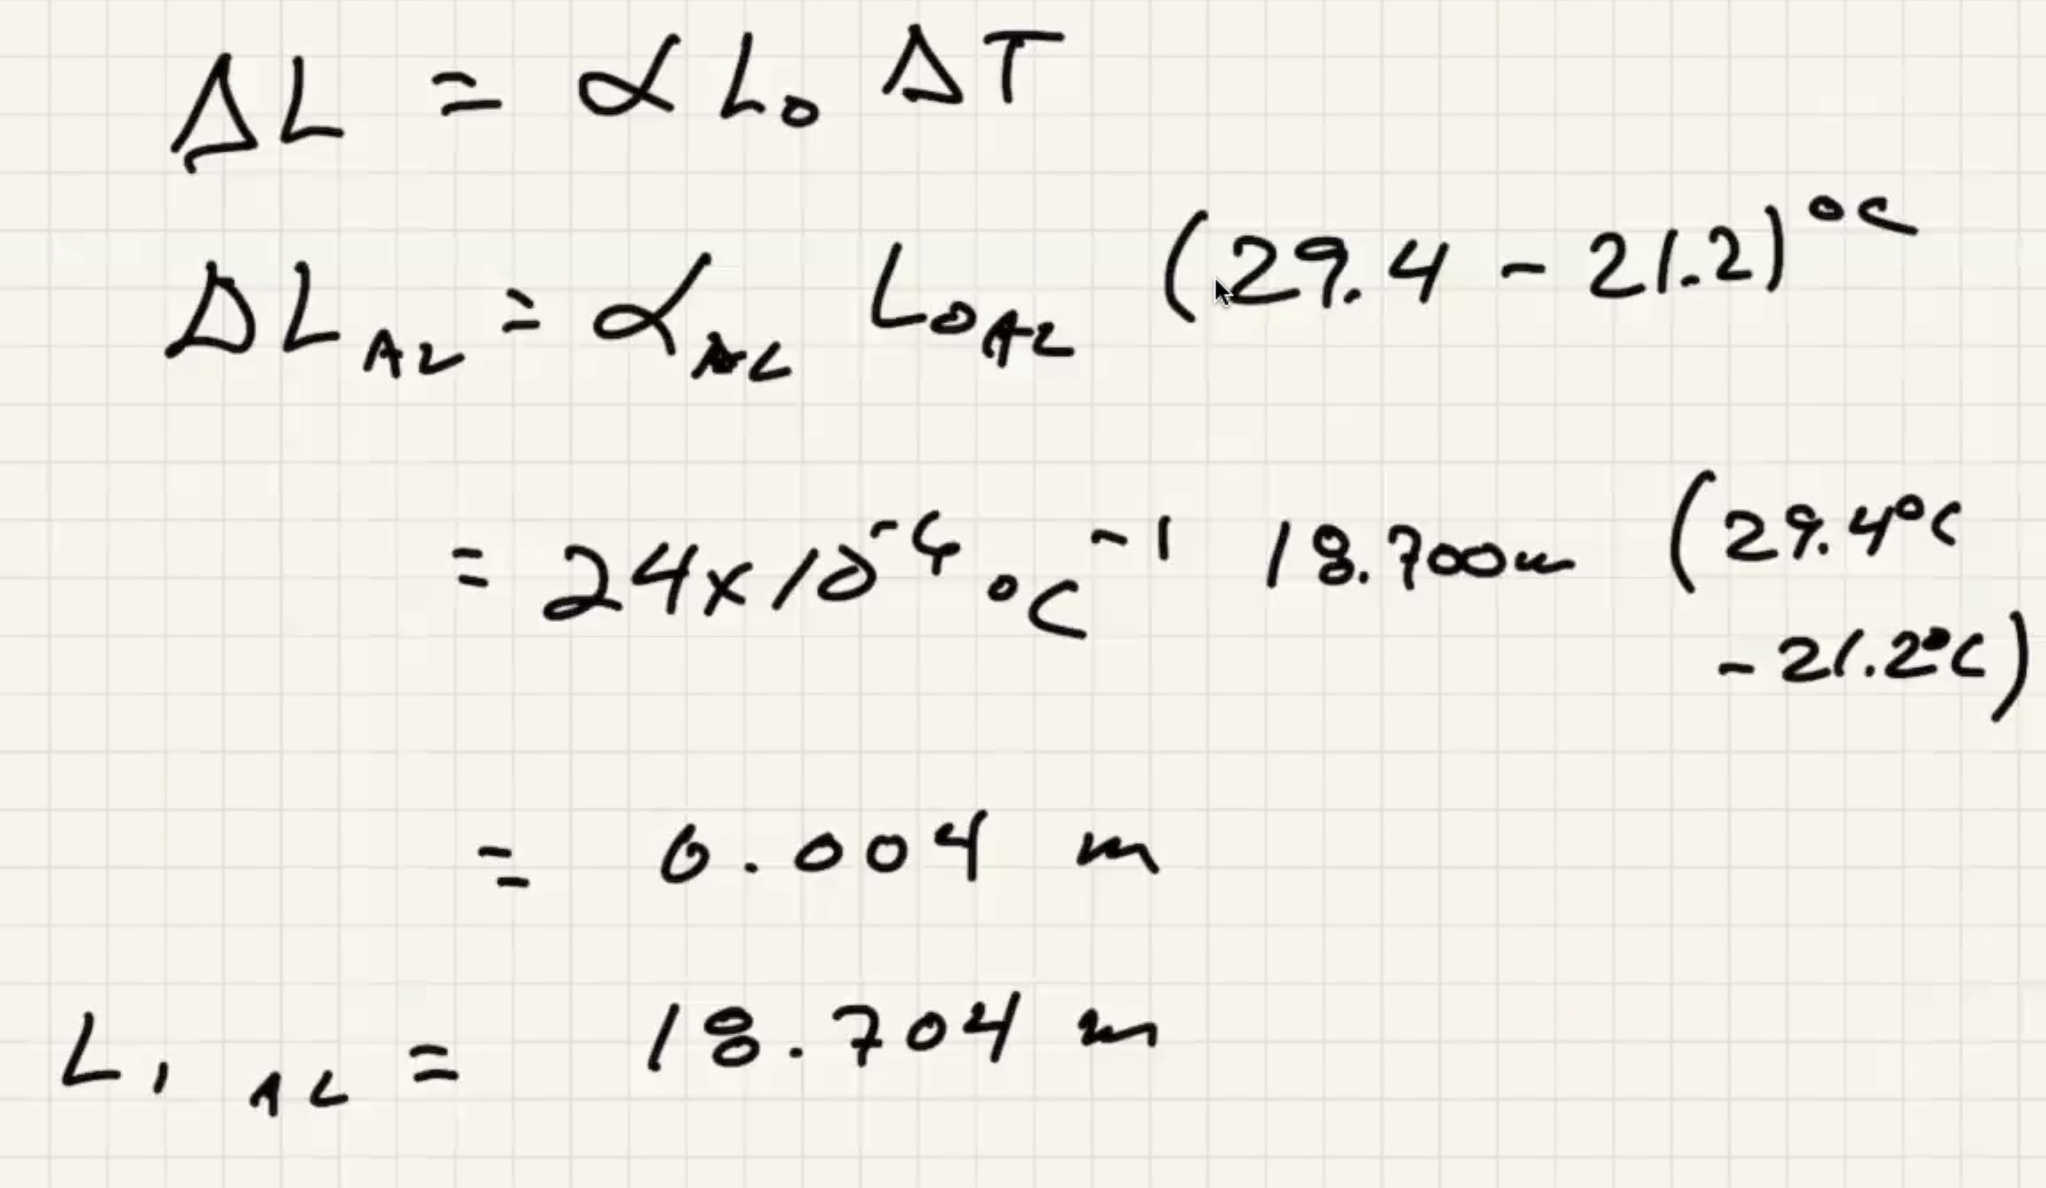 ΔL = α L₀ ΔT
ΔL_AL = α_AL L₀_AL (29.4 - 21.2)°C
= 24x10⁻⁶ °C⁻¹ 18.700m (29.4°C
- 21.2°C)
= 0.004 m
L₁ AL = 18.704 m